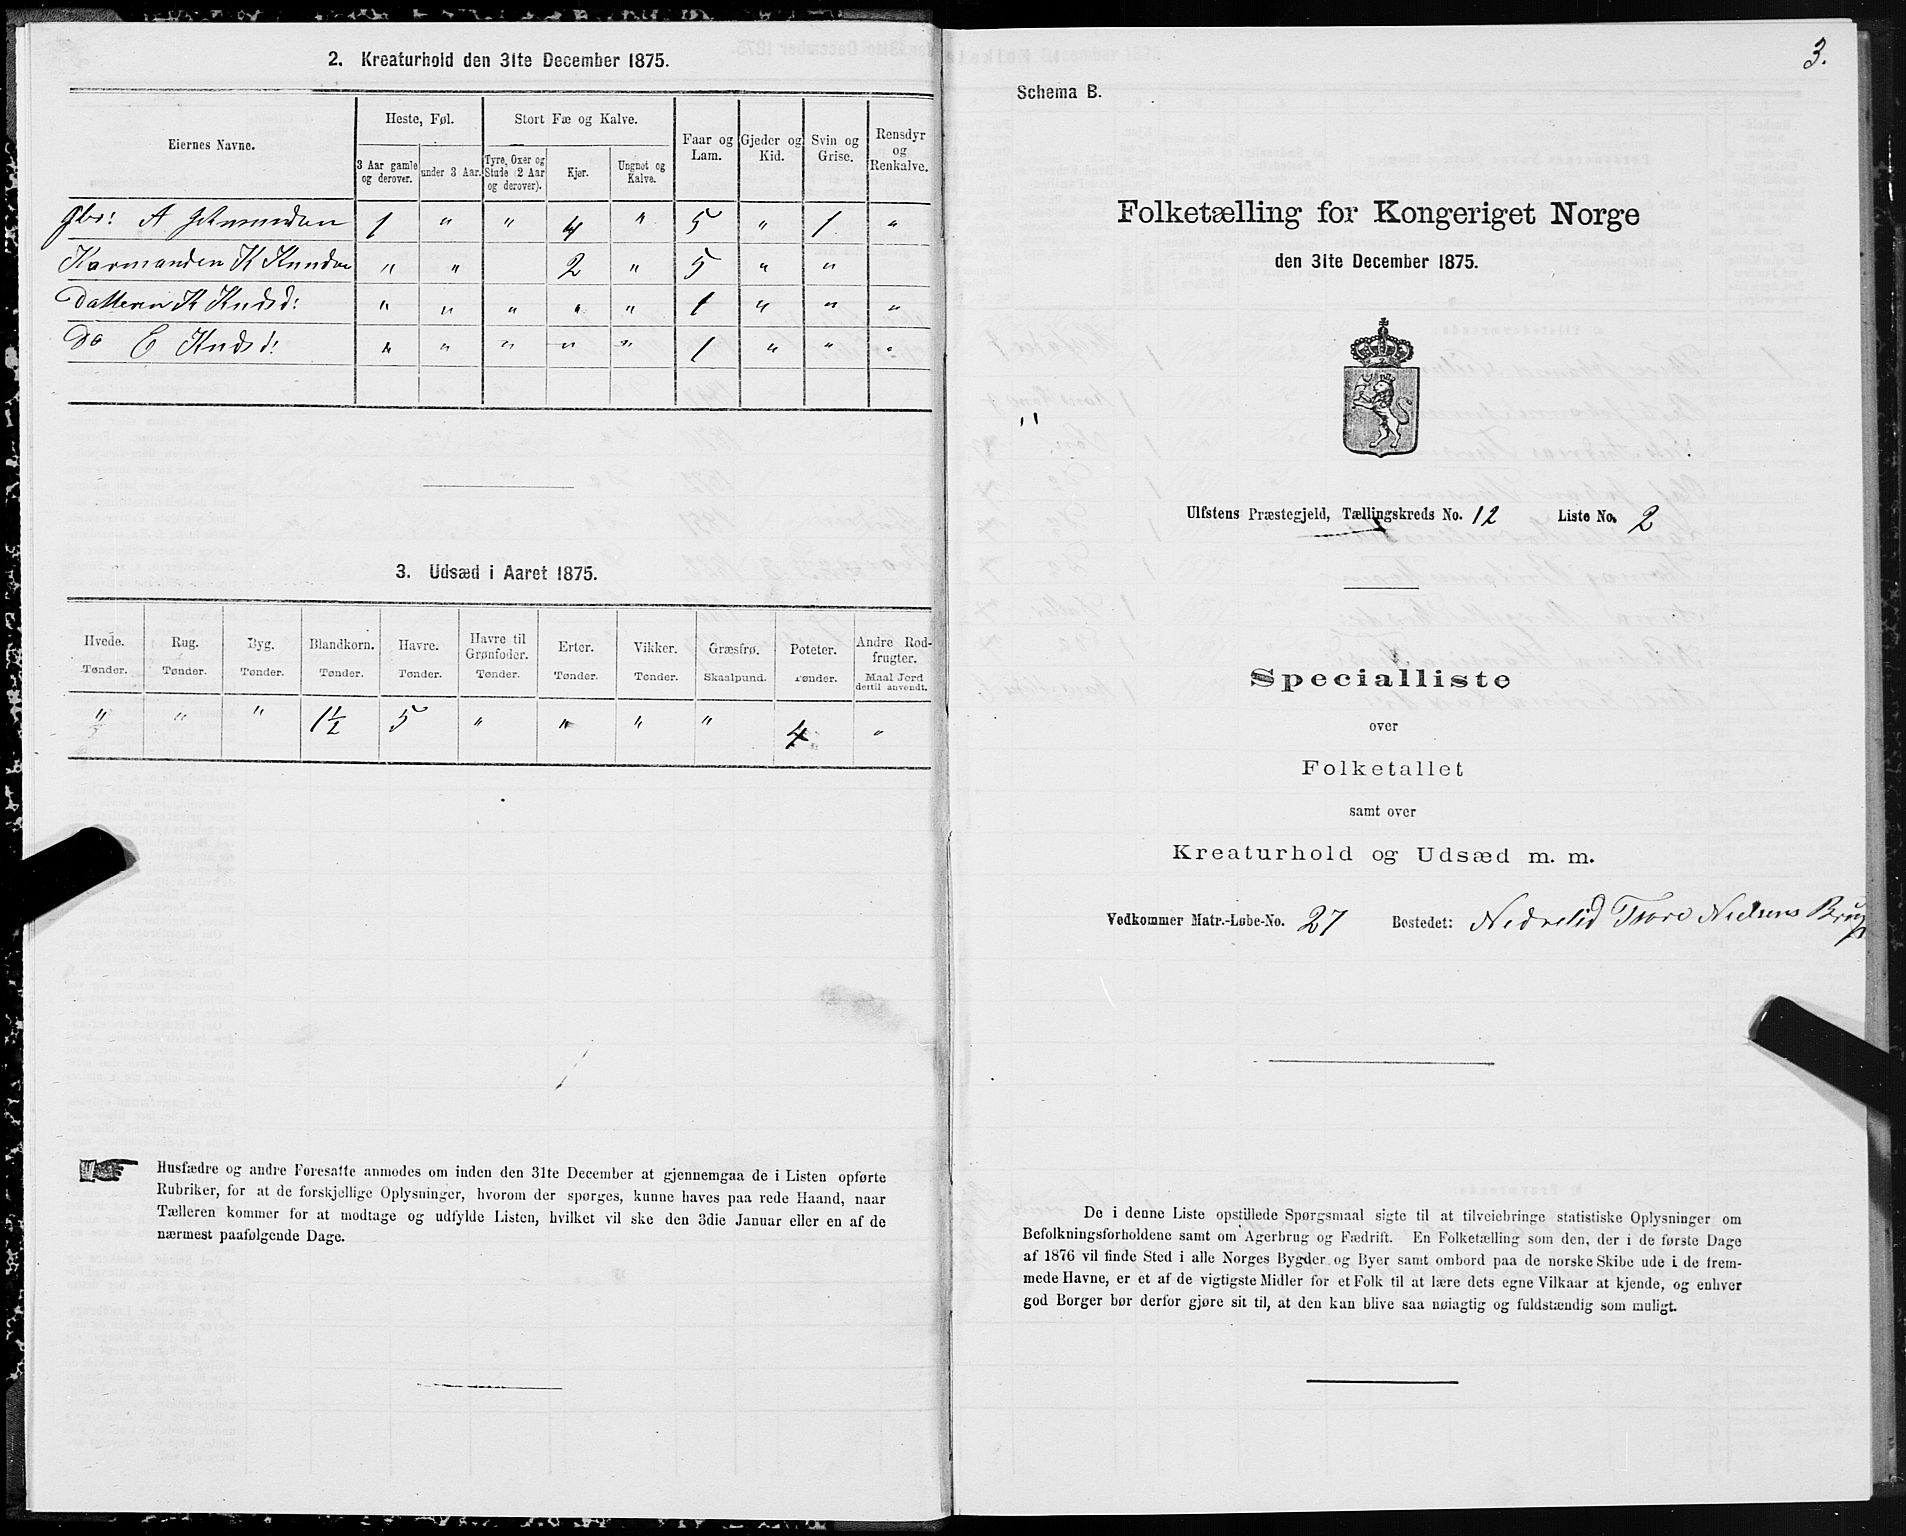 2. Kreaturhold den 31te December 1875.
Eiernes Navne.
Heste, Føl.
Stort Fæ og Kalve.
Faar og Lam.
Gjeder og Kid.
Svin og Grise.
Rensdyr og Renkalve.
3 Aar gamle og derover.
under 3 Aar.
Tyre, Oxer og Stude (2 Aar og derover).
Kjør.
Ungnøt og Kalve.
Gbr: A 1 " " 4 " 5 " 1 "
Kaarmanden K Knudsen " " 2 " 5 " "
Datteren K Kndsd: " " " " " 1 " " "
Do C Knds d: " " " " " 1 " " "
3. Udsæd i Aaret 1875.
Hvede. Rug. Byg. Blandkorn. Havre. Havre til Grønfoder. Erter. Vikker. Græsfrø. Poteter. Andre Rodfrugter.
Tønder. Tønder. Tønder. Tønder. Tønder. Tønder. Tønder. Tønder. Skaalpund. Tønder. Maal Jord dertil anvendt.
" " " 1½ 5 " " " " 4 "
Husfædre og andre Foresatte anmodes om inden den 31te December at gjennemgaa de i Listen opførte
Rubriker, for at de forskjellige Oplysninger, hvorom der spørges, kunne haves paa rede Haand, naar
Tælleren kommer for at modtage og udfylde Listen, hvilket vil ske den 3die Januar eller en af de
nærmest paafølgende Dage.
3.
Schema B.
Folketælling for Kongeriget Norge
den 31te December 1875.
Ulfstens Præstegjeld, Tællingskreds No. 12 Liste No. 2
Specialliste
over
Folketallet
samt over
Kreaturhold og Udsæd m. m.
Vedkommer Matr.-Løbe-No. 27 Bostedet: Nedrelid Thore Nielsens Brug
De i denne Liste opstillede Spørgsmaal sigte til at tilveiebringe statistiske Oplysninger om
Befolkningsforholdene samt om Agerbrug og Fædrift. En Folketælling som den, der i de første Dage
af 1876 vil finde Sted i alle Norges Bygder og Byer samt ombord paa de norske Skibe ude i de frem-
mede Havne, er et af de vigtigste Midler for et Folk til at lære dets egne Vilkaar at kjende, og enhver
god Borger bør derfor gjøre sit til, at den kan blive saa nøiagtig og fuldstændig som muligt.